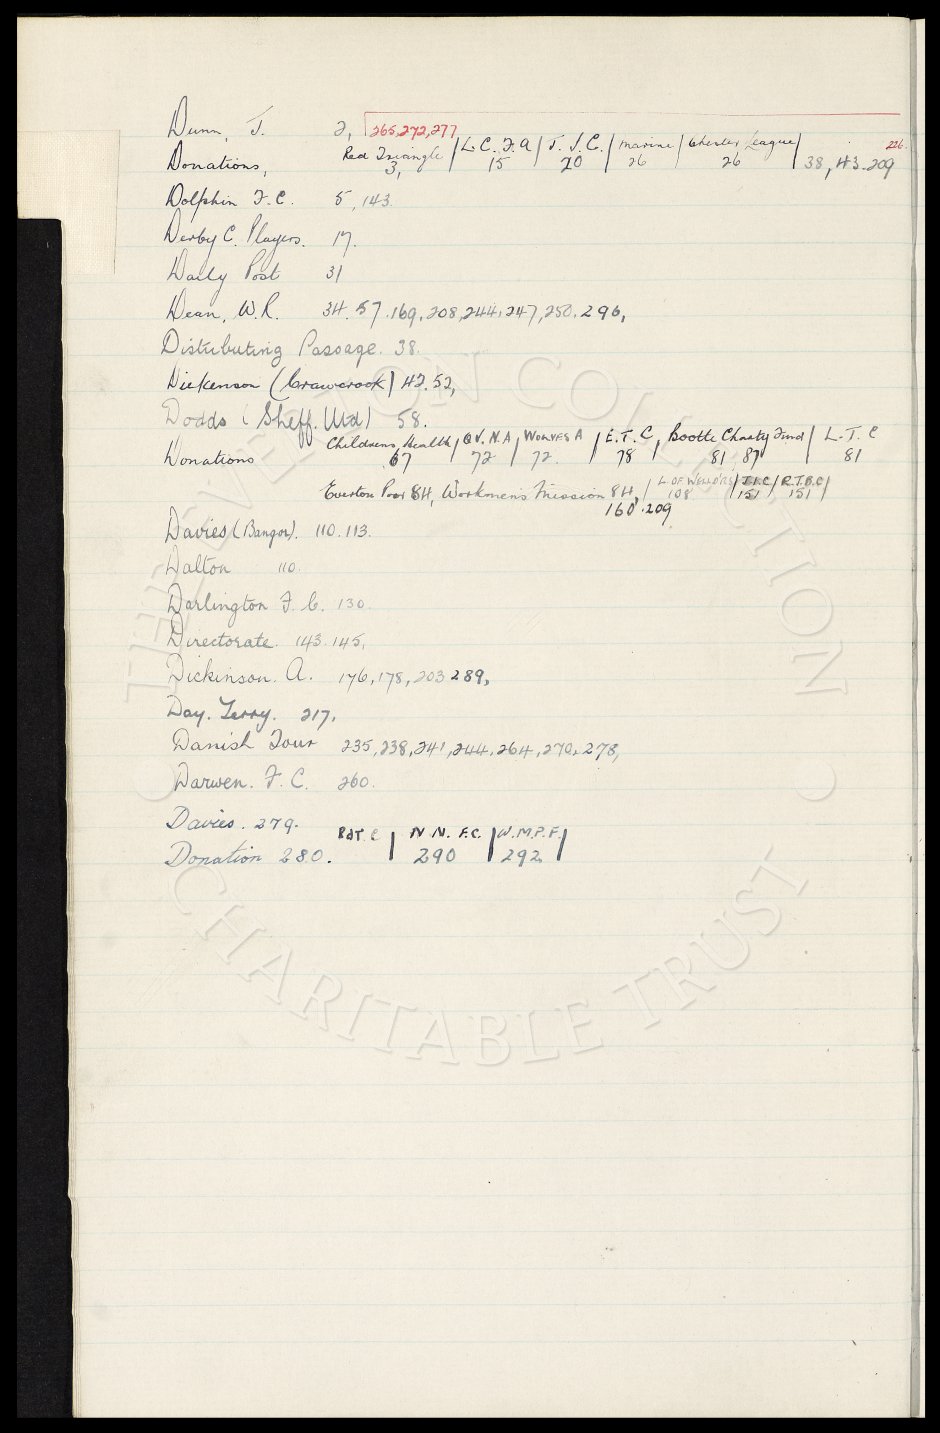 Dunn, J. 2, 265,272,277
Red Triangle / L.C.F.A / T.J.C. / Marine / Chester League / 226.
Donations, 3, 15 20 26 26 38, 43.209
Dolphin F.C. 5, 143
Derby C. Players. 17.
Daily Post 31
Dean, W.R. 34.57.169,208,244,247,250,296,
Distributing Passage. 38.
Dickenson (Crawcrook) 42.52,
Dodds (Sheff. Utd) 58.
Childrens Health / QV.N.A / Wolves A / E.T.C, / Bootle Charty Fund / L.T.C
Donations 67 72 72 78 81 87 81
Everton Poor 84, Workmen's Mission 84, / L OF WELLD'RS 108 / 151 / R.T.B.C 151 /
160.209
Davies (Bangor). 110.113.
Dalton 110.
Darlington F.C. 130.
Directorate. 143.145,
Dickinson. A. 176,178,203 289,
Day. Terry. 217,
Danish Tour 235,238,241,244,264,270,278,
Darwen. F.C. 260.
Davies. 279.
/ N N. F.C. / W.M.P.F. /
Donation 280. 290 292
THE EVERTON COLLECTION
CHARITABLE TRUST